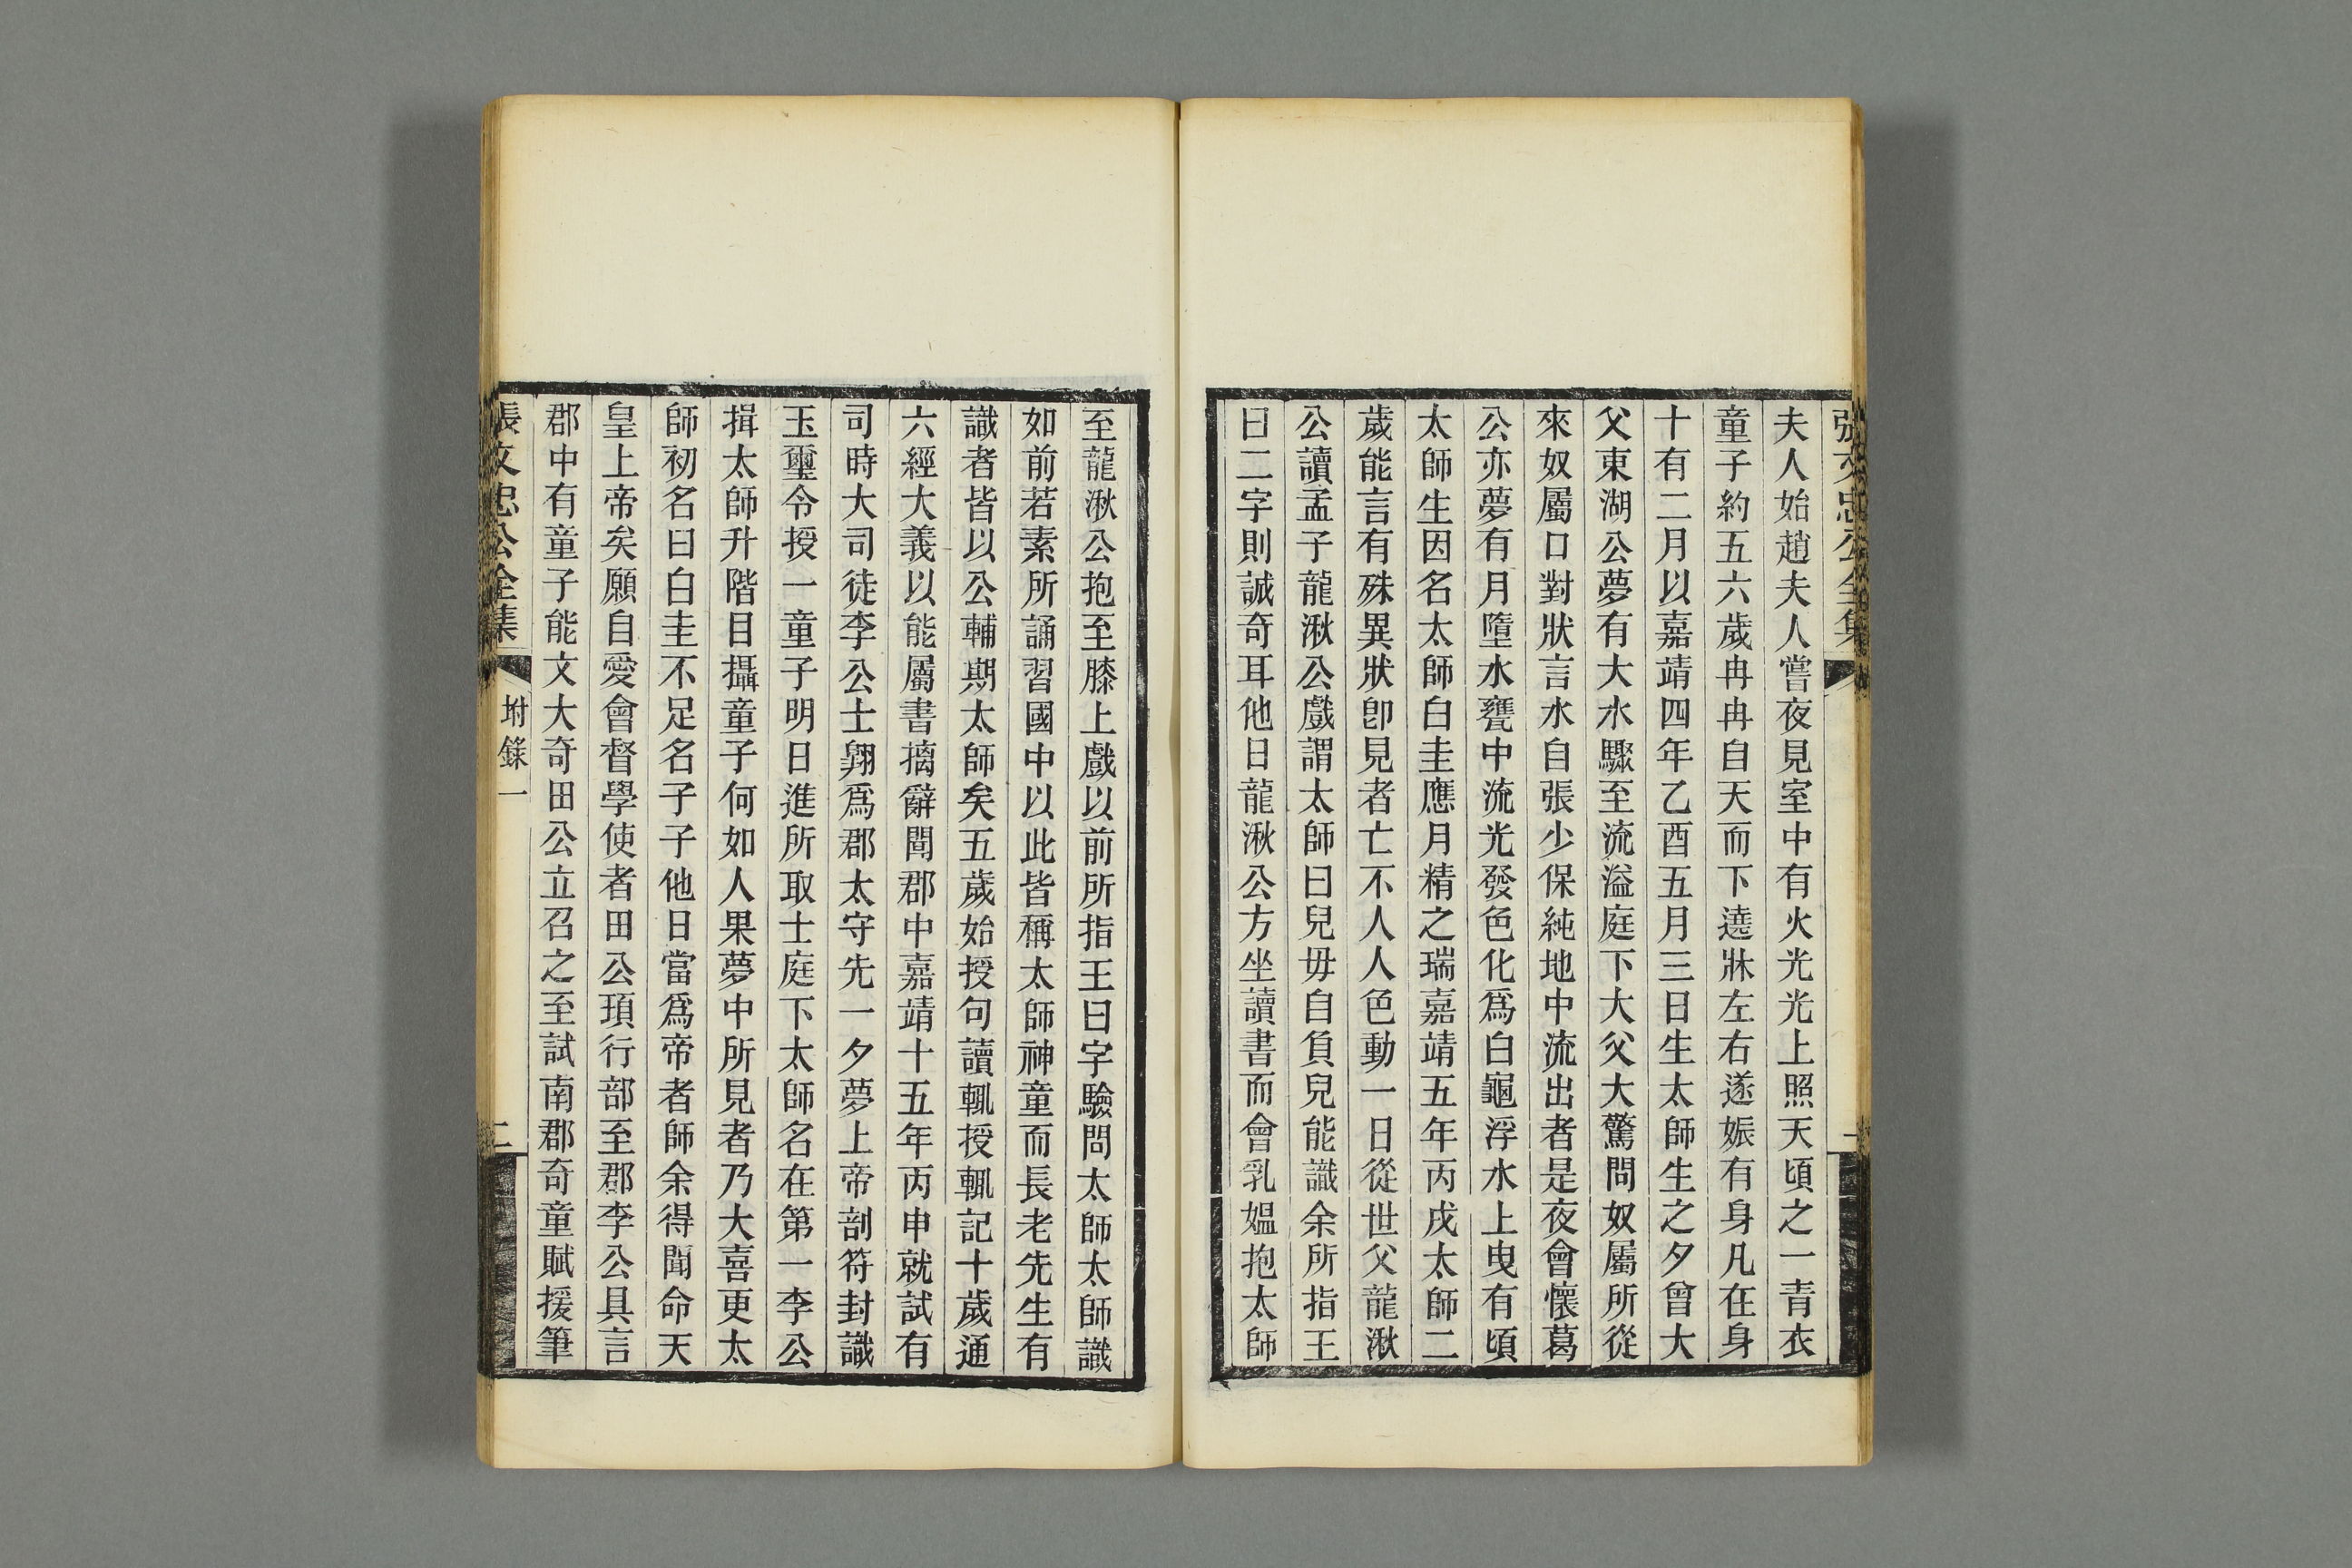 張文忠公全集
夫人始趙夫人嘗夜見室中有火光光上照天頃之一青衣
童子約五六歲冉冉自天而下遶牀左右遂娠有身凡在身
十有二月以嘉靖四年乙酉五月三日生太師生之夕曾大
父東湖公夢有大水驟至流溢庭下大父大驚問奴屬所從
來奴屬口對狀言水自張少保純地中流出者是夜會懷葛
公亦夢有月墮水甕中流光發色化爲白龜浮水上曳有頃
太師生因名太師白圭應月精之瑞嘉靖五年丙戌太師二
歲能言有殊異狀卽見者亡不人人色動一日從世父龍湫
公讀孟子龍湫公戲謂太師曰兒毋自負兒能識余所指王
曰二字則誠奇耳他日龍湫公方坐讀書而會乳媼抱太師
至龍湫公抱至膝上戲以前所指王曰字驗問太師太師識
如前若素所誦習國中以此皆稱太師神童而長老先生有
識者皆以公輔期太師矣五歲始授句讀輒授輒記十歲通
六經大義以能屬書摛辭聞郡中嘉靖十五年丙申就試有
司時大司徒李公士翺爲郡太守先一夕夢上帝剖符封識
玉璽令授一童子明日進所取士庭下太師名在第一李公
揖太師升階目攝童子何如人果夢中所見者乃大喜更太
師初名曰白圭不足名子子他日當爲帝者師余得聞命天
皇上帝矣願自愛會督學使者田公頊行部至郡李公具言
郡中有童子能文大奇田公立召之至試南郡奇童賦援筆
張文忠公全集
坿錄一
二